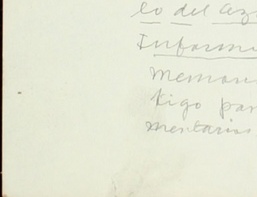 lo del Az
Informa
memor
tigo par
mentarios